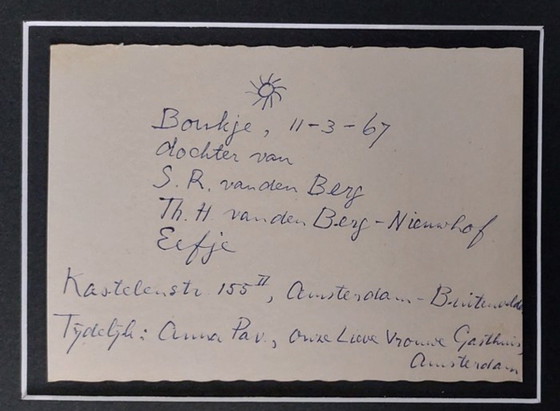 Boukje, 11-3-67
dochter van
S. R. van den Berg
Th. H. van den Berg-Nieuwhof
Eefje
Kastelenstr. 155 II, Amsterdam-Buitenvelde
Tijdelijk: Anna Pav., Onze Lieve Vrouwe Gasthuis,
Amsterdam